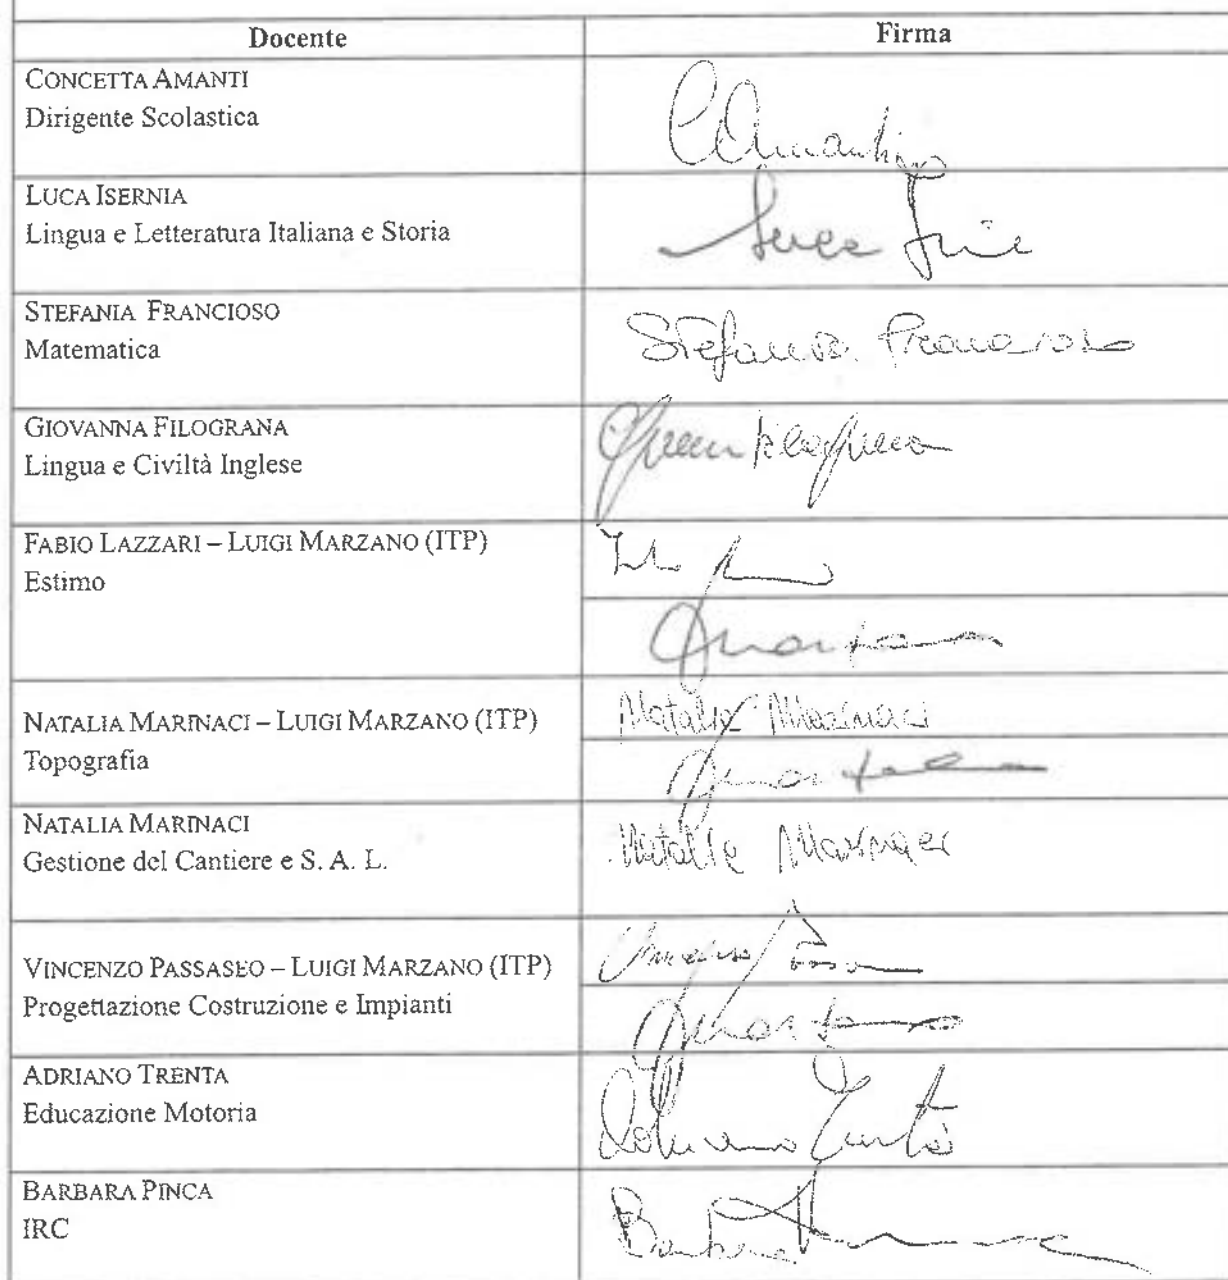 Docente
Firma
CONCETTA AMANTI
Dirigente Scolastica
CAmanti
LUCA ISERNIA
Lingua e Letteratura Italiana e Storia
Luca
STEFANIA FRANCIOSO
Matematica
Stefania Francioso
GIOVANNA FILOGRANA
Lingua e Civiltà Inglese
Filograna
FABIO LAZZARI – LUIGI MARZANO (ITP)
Estimo
NATALIA MARINACI – LUIGI MARZANO (ITP)
Topografia
Natalia Marinaci
NATALIA MARINACI
Gestione del Cantiere e S. A. L.
Natalia Marinaci
VINCENZO PASSASEO – LUIGI MARZANO (ITP)
Progettazione Costruzione e Impianti
ADRIANO TRENTA
Educazione Motoria
BARBARA PINCA
IRC
Barbara